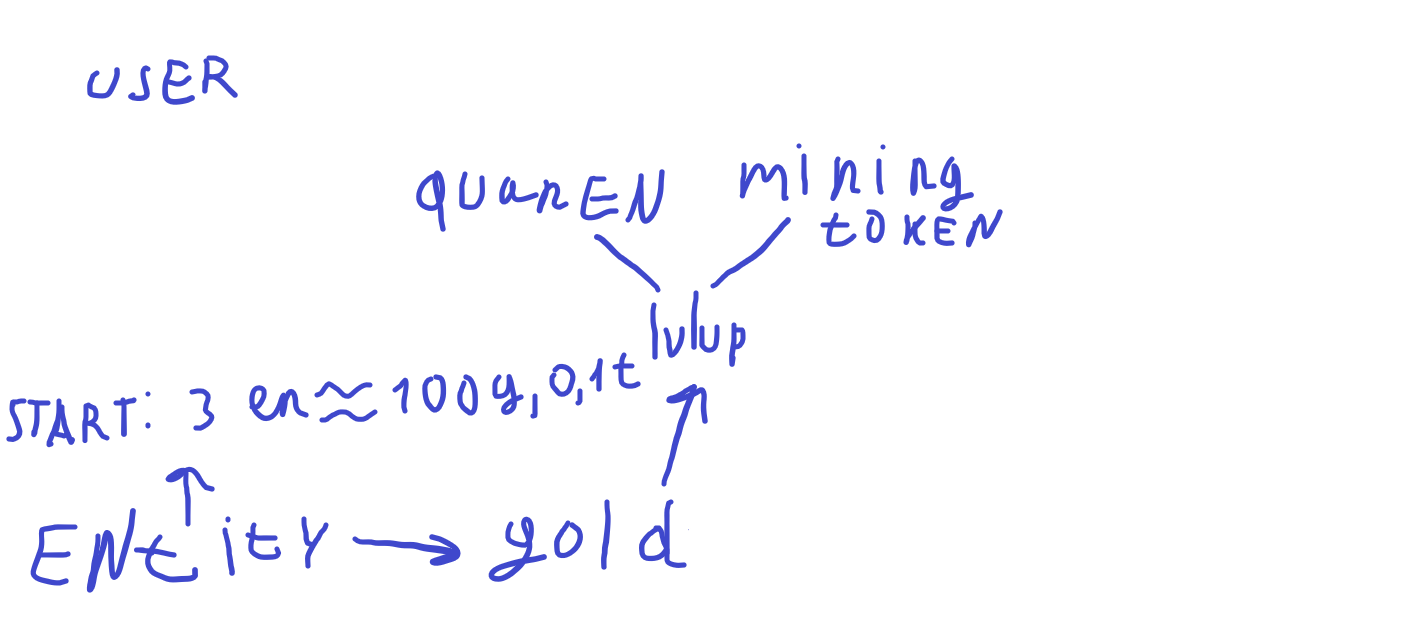 USER
quanEN mining
tOKEN
lvlup
START: 3 en ≈ 100g, 0,1t
ENtity → gold